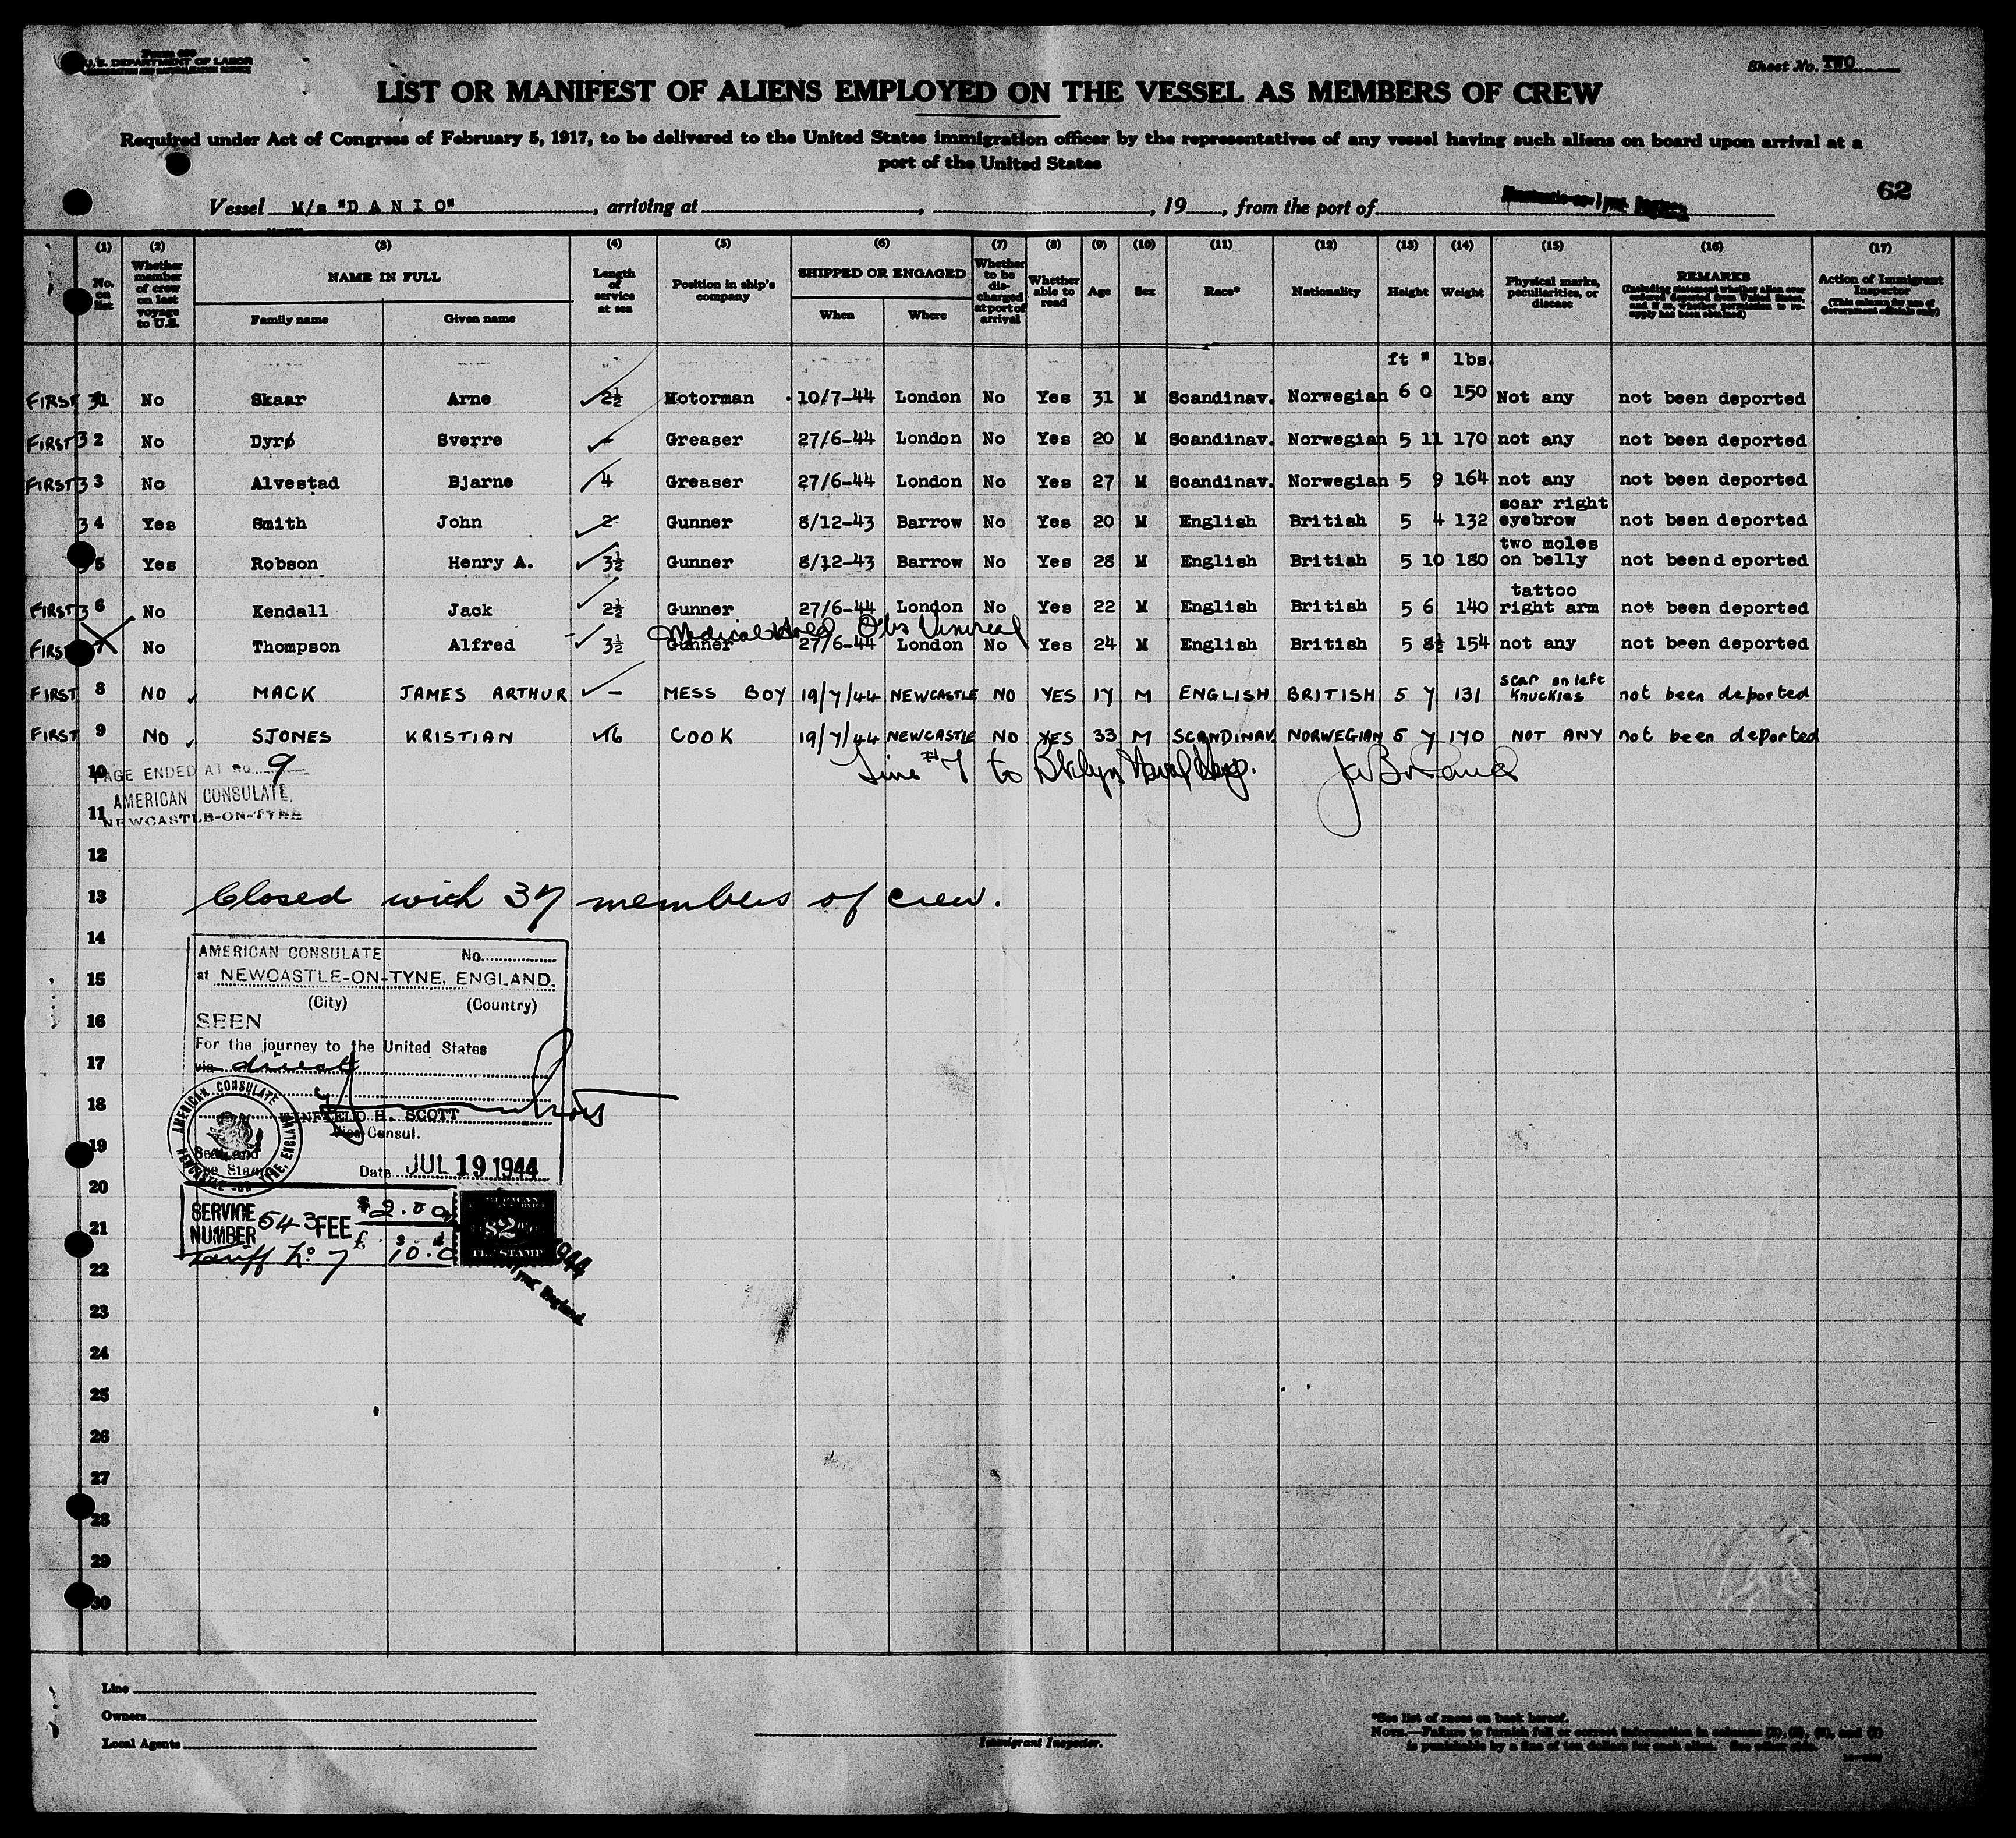 Form 680
U. S. DEPARTMENT OF LABOR
IMMIGRATION AND NATURALIZATION SERVICE
Sheet No. TWO
LIST OR MANIFEST OF ALIENS EMPLOYED ON THE VESSEL AS MEMBERS OF CREW
Required under Act of Congress of February 5, 1917, to be delivered to the United States immigration officer by the representatives of any vessel having such aliens on board upon arrival at a
port of the United States
62
Vessel M/s "D A N I O", arriving at , , 19 , from the port of
(1) (2) (3) (4) (5) (6) (7) (8) (9) (10) (11) (12) (13) (14) (15) (16) (17)
No. on list
Whether member of crew on last voyage to U.S.
NAME IN FULL
Family name Given name
Length of service at sea
Position in ship's company
SHIPPED OR ENGAGED
When Where
Whether to be discharged at port of arrival
Whether able to read
Age
Sex
Race*
Nationality
Height
Weight
Physical marks, peculiarities, or disease
REMARKS
(Including statement whether alien ever ordered deported from United States, and if so, whether permission to reapply has been obtained)
Action of Immigrant Inspector
(This column for use of Government officials only)
ft " lbs.
FIRST 31 No Skaar Arne 2½ Motorman 10/7-44 London No Yes 31 M Scandinav. Norwegian 6 0 150 Not any not been deported
FIRST 32 No Dyrø Sverre - Greaser 27/6-44 London No Yes 20 M Scandinav. Norwegian 5 11 170 not any not been deported
FIRST 33 No Alvestad Bjarne 4 Greaser 27/6-44 London No Yes 27 M Scandinav. Norwegian 5 9 164 not any not been deported
34 Yes Smith John 2 Gunner 8/12-43 Barrow No Yes 20 M English British 5 4 132 scar right eyebrow not been deported
35 Yes Robson Henry A. 3½ Gunner 8/12-43 Barrow No Yes 28 M English British 5 10 180 two moles on belly not beend eported
FIRST 36 No Kendall Jack 2½ Gunner 27/6-44 London No Yes 22 M English British 5 6 140 tattoo right arm not been deported
Medical Hold Obs Venereal
FIRST 7 No Thompson Alfred 3½ Gunner 27/6-44 London No Yes 24 M English British 5 8½ 154 not any not been deported
FIRST 8 NO MACK JAMES ARTHUR - MESS BOY 19/7/44 NEWCASTLE NO YES 17 M ENGLISH BRITISH 5 7 131 scar on left knuckles not been deported
FIRST 9 NO SJONES KRISTIAN 16 COOK 19/7/44 NEWCASTLE NO YES 33 M SCANDINAV. NORWEGIAN 5 7 170 NOT ANY not been deported
Line #7 to Bklyn Naval Hosp.
10
PAGE ENDED AT No. 9
AMERICAN CONSULATE,
11
NEWCASTLE-ON-TYNE
12
13
Closed with 37 members of crew.
14
AMERICAN CONSULATE No.
15
at NEWCASTLE-ON-TYNE, ENGLAND.
(City) (Country)
16
SEEN
For the journey to the United States
17
via direct
18
WINFIELD H. SCOTT
Vice Consul.
AMERICAN CONSULATE
NEWCASTLE-ON-TYNE, ENGLAND
19
Seal and
Fee Stamp
Date JUL 19 1944
20
SERVICE NUMBER 543 FEE $2.00
21
£ s. d.
Tariff No. 7 10.0
$2
FEE STAMP
1944
22
Tyne, England
23
24
25
26
27
28
29
30
Line
Owners
Local Agents
Immigrant Inspector.
*See list of races on back hereof.
NOTE.—Failure to furnish full or correct information in columns (2), (3), (6), and (7)
is punishable by a fine of ten dollars for each alien. See other side.